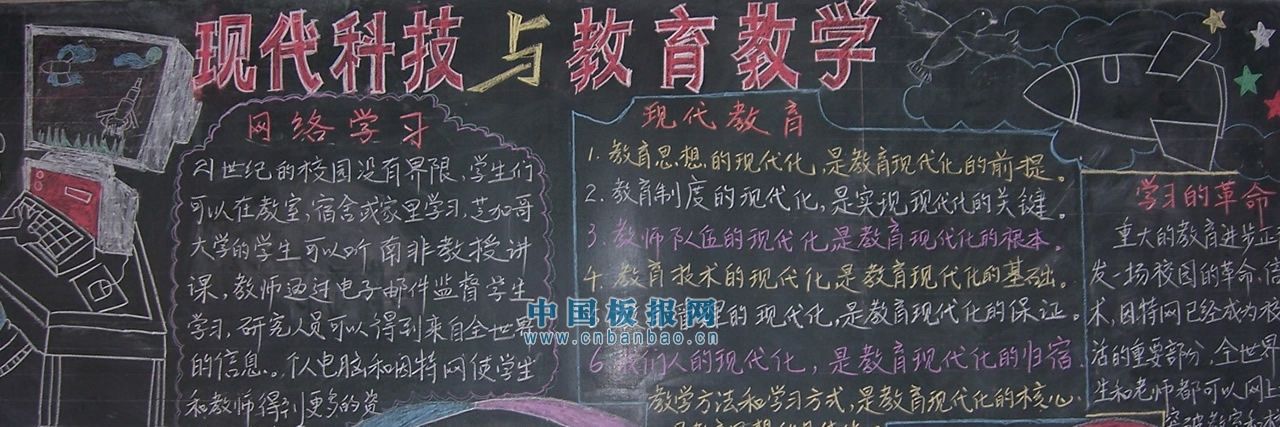 现代科技与教育教学
网络学习
21世纪的校园没有界限,学生们
可以在教室,宿舍或家里学习,芝加哥
大学的学生可以听南非教授讲
课,教师通过电子邮件监督学生
学习,研究人员可以得到来自全世界
的信息。个人电脑和因特网使学生
和教师得到更多的资
现代教育
1.教育思想的现代化,是教育现代化的前提。
2.教育制度的现代化,是实现现代化的关键。
3.教师队伍的现代化是教育现代化的根本。
4.教育技术的现代化是教育现代化的基础。
的现代化,是教育现代化的保证。
6.我们人的现代化,是教育现代化的归宿
教学方法和学习方式,是教育现代化的核心.
学习的革命
重大的教育进步正
发一扬校园的革命,信
术,因特网已经成为校
活的重要部分,全世界
生和老师都可以网上
突破教室和校
中国板报网
www.cnbanbao.cn